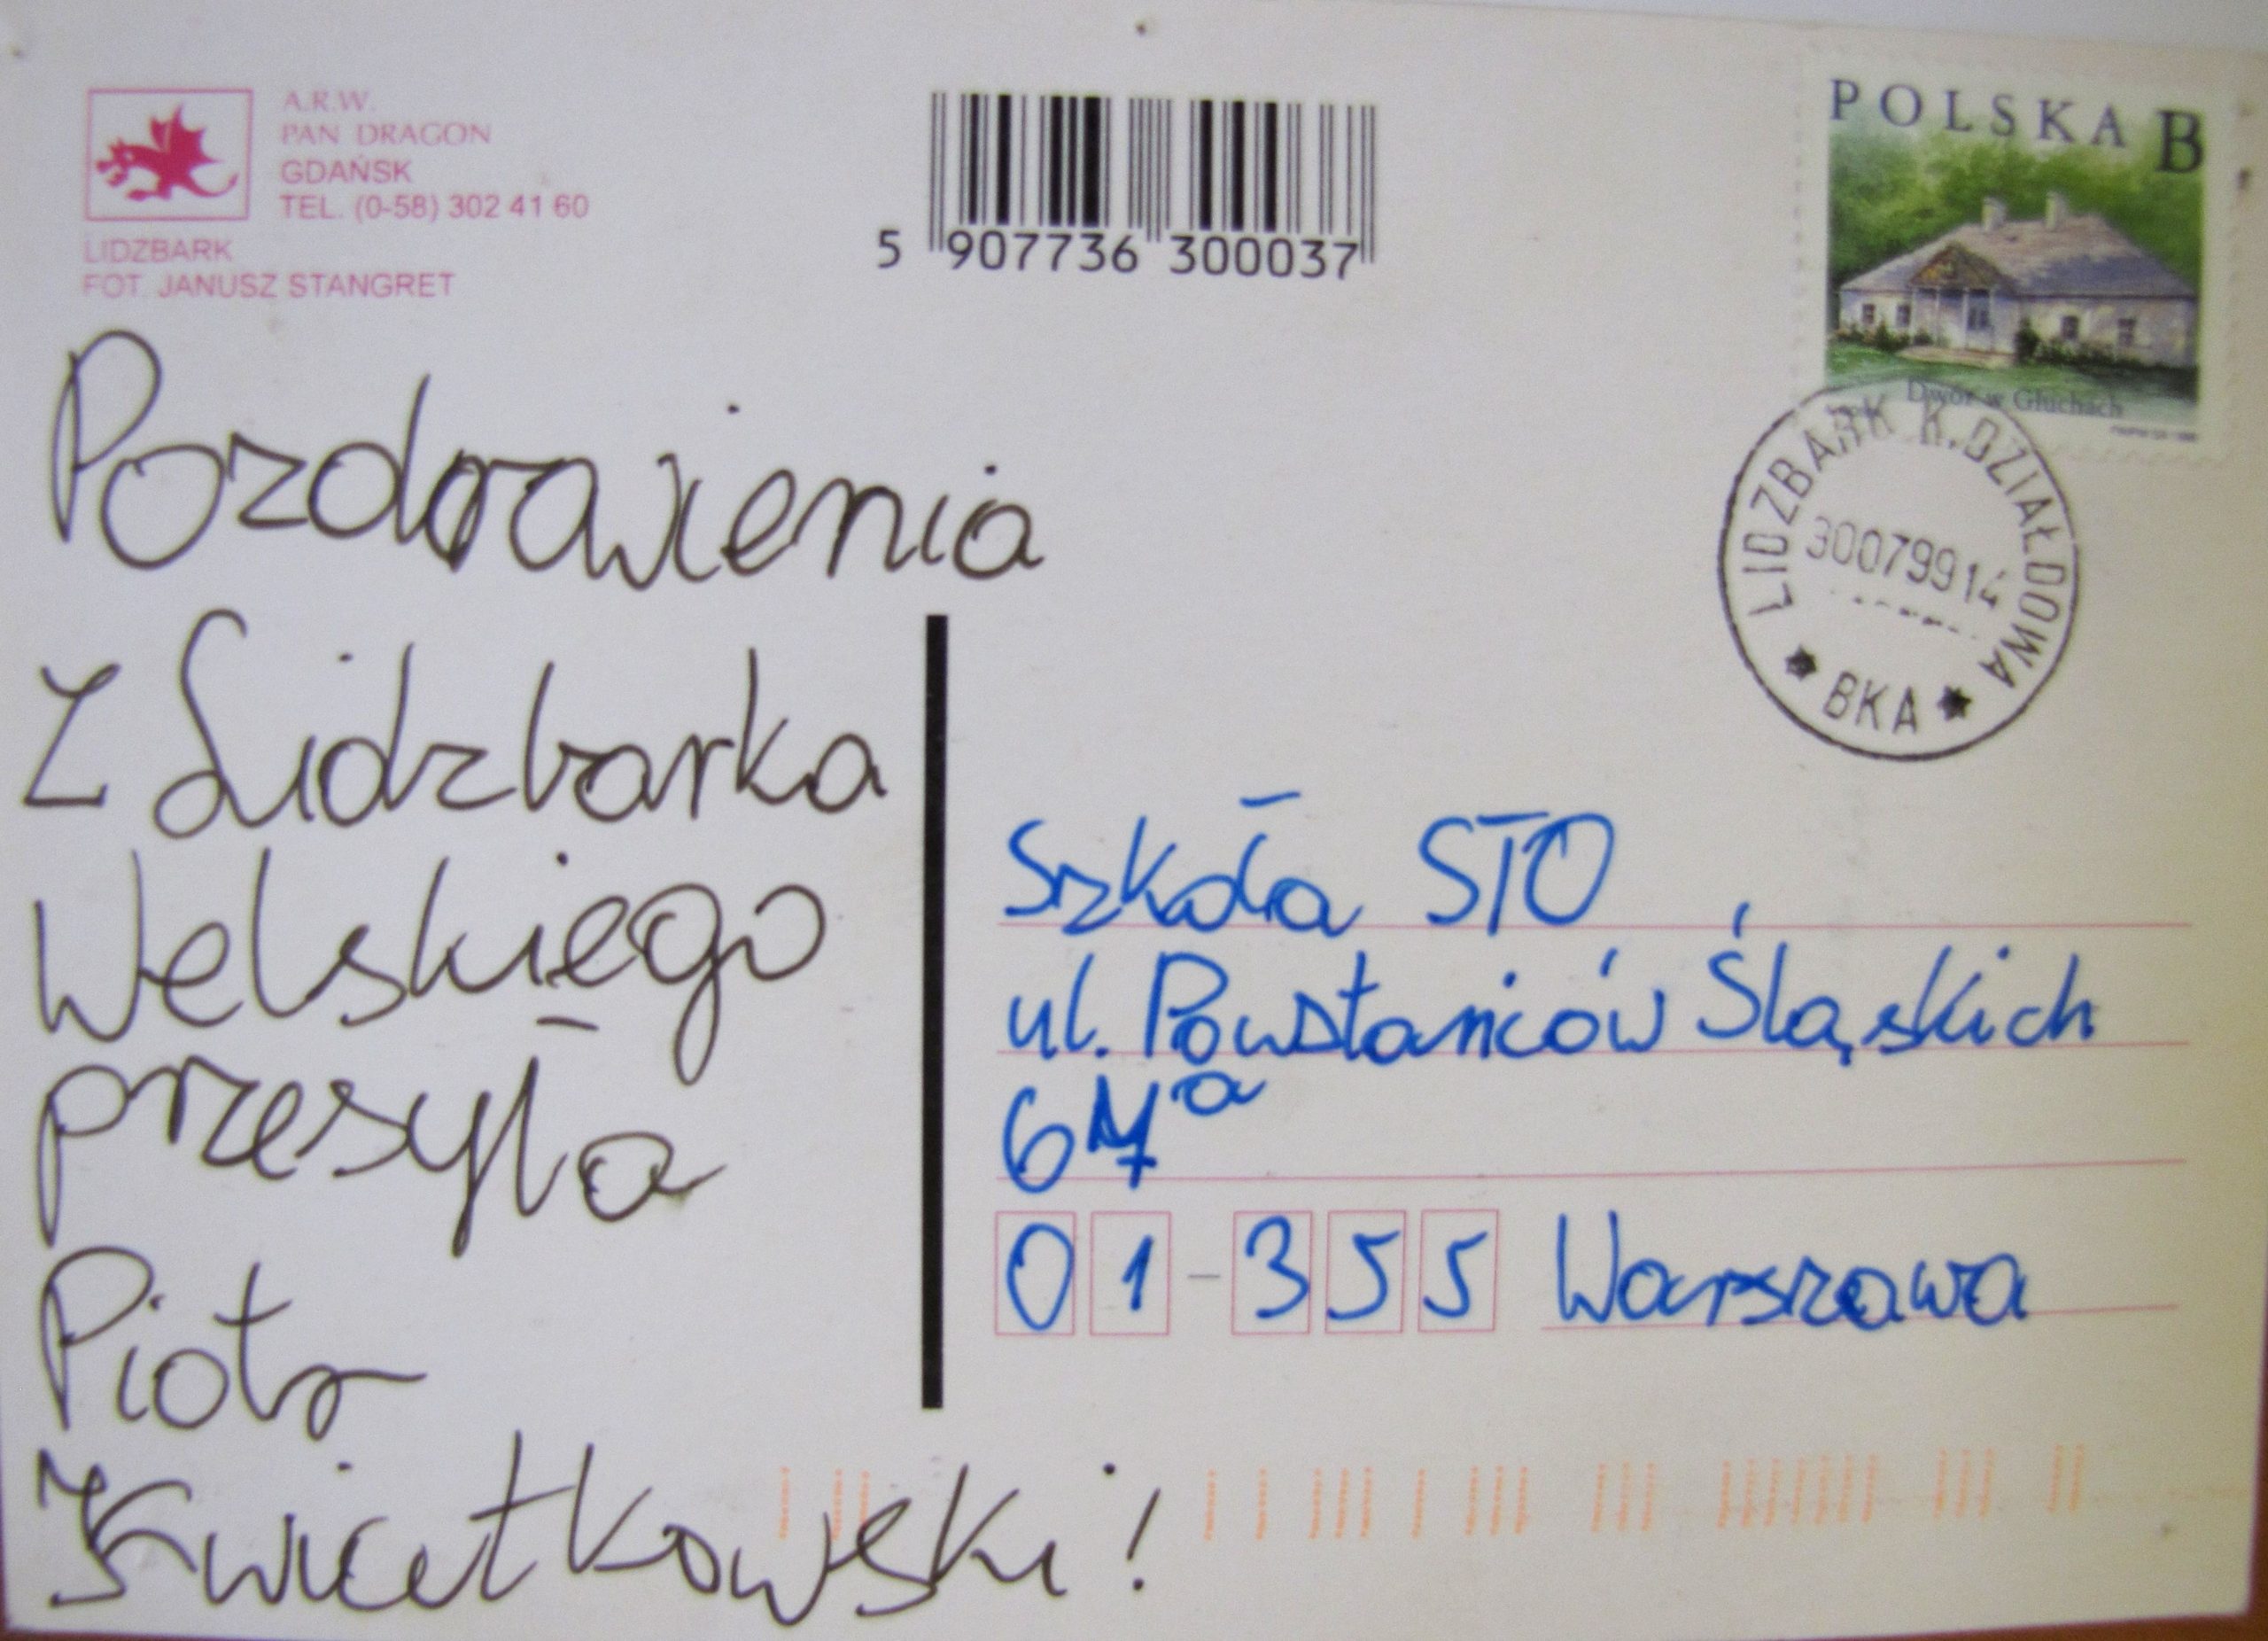 A.R.W.
PAN DRAGON
GDAŃSK
TEL. (0-58) 302 41 60
LIDZBARK
FOT. JANUSZ STANGRET
5 907736 300037
POLSKA B
Dwór w Głuchach
LIDZBARK K.DZIAŁDOWA
30079914
★ BKA ★
Pozdrowienia
z Lidzbarka
Welskiego
przesyła
Piotr
Kwiatkowski!
Szkoła STO
ul. Powstańców Śląskich
67a
01-355 Warszawa